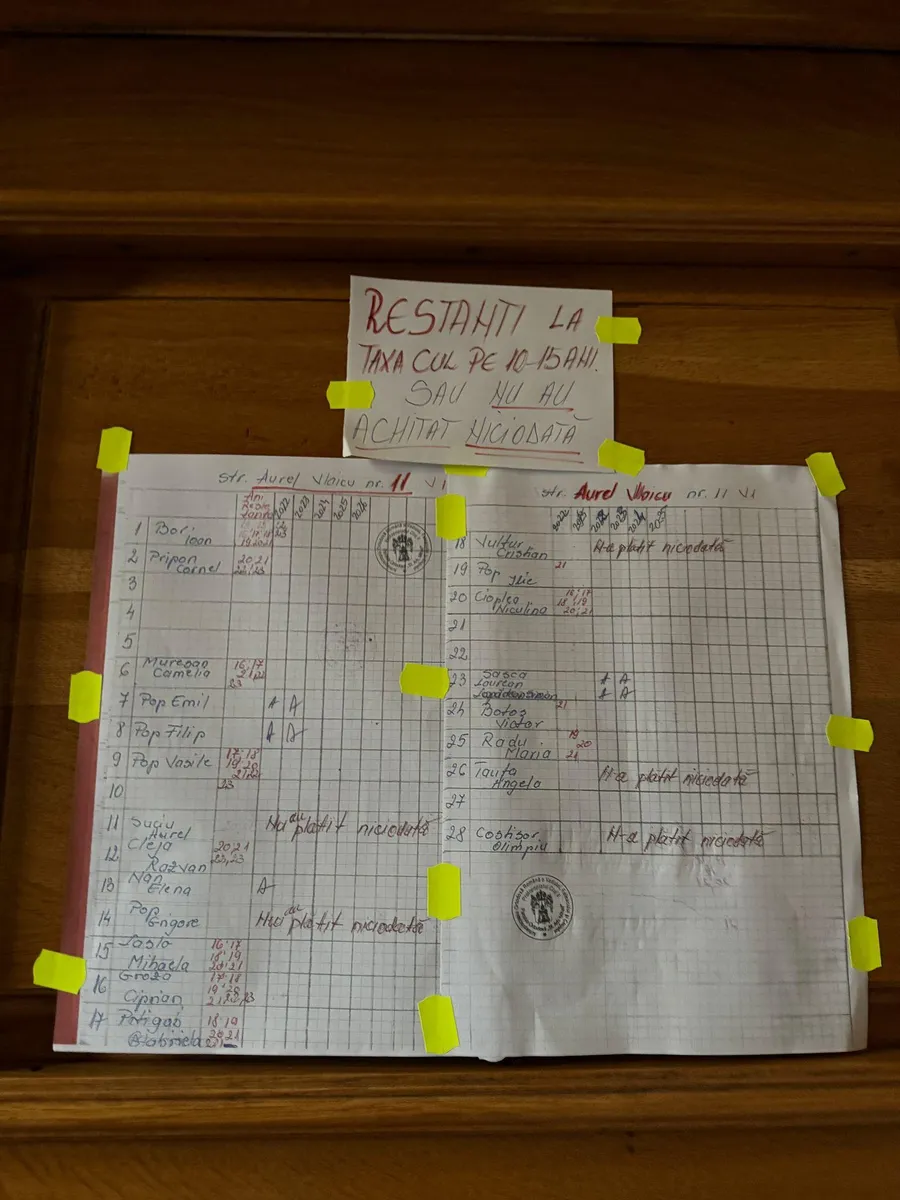 RESTANȚI LA
TAXA CUL PE 10-15 ANI.
SAU NU AU
ACHITAT NICIODATĂ
str. Aurel Vlaicu nr. 11 VI
Ani
2022 2023 2024 2025 2026
1 Bori
Ioan
19 20 21
2 Pripon 20,21
Cornel 22,23
3
4
5
6 Mureșan 16,17
Camelia
23
7 Pop Emil A A
8 Pop Filip A A
9 Pop Vasile 17-18
19,20
21,22
10 23
11 Suciu
Aurel
N-au platit niciodată
12 Cleja 20,21
Răzvan 22,23
13 Nan
Elena
A
14 Pop
Grigore
N-au platit niciodată
15 Laslo 16-17
Mihaela 18,19
20,21
16 Groza 17-18
Ciprian 19,20
21,22,23
17 Potigab 18,19
Gabriela 20,21
str. Aurel Vlaicu nr. 11 VI
2022
18 Vultur
Cristian
N-a platit niciodată
19 Pop 21
Ilie
20 Cioplea 16,17
Niculina 18,19
20,21
21
22
23 Sasca A A
Laurean A A
24 Botoș 21
Victor
25 Radu 19
Maria 20
21
26 Tauta
Angela
N-a platit niciodată
27
28 Coshisor
Olimpiu
N-a platit niciodată